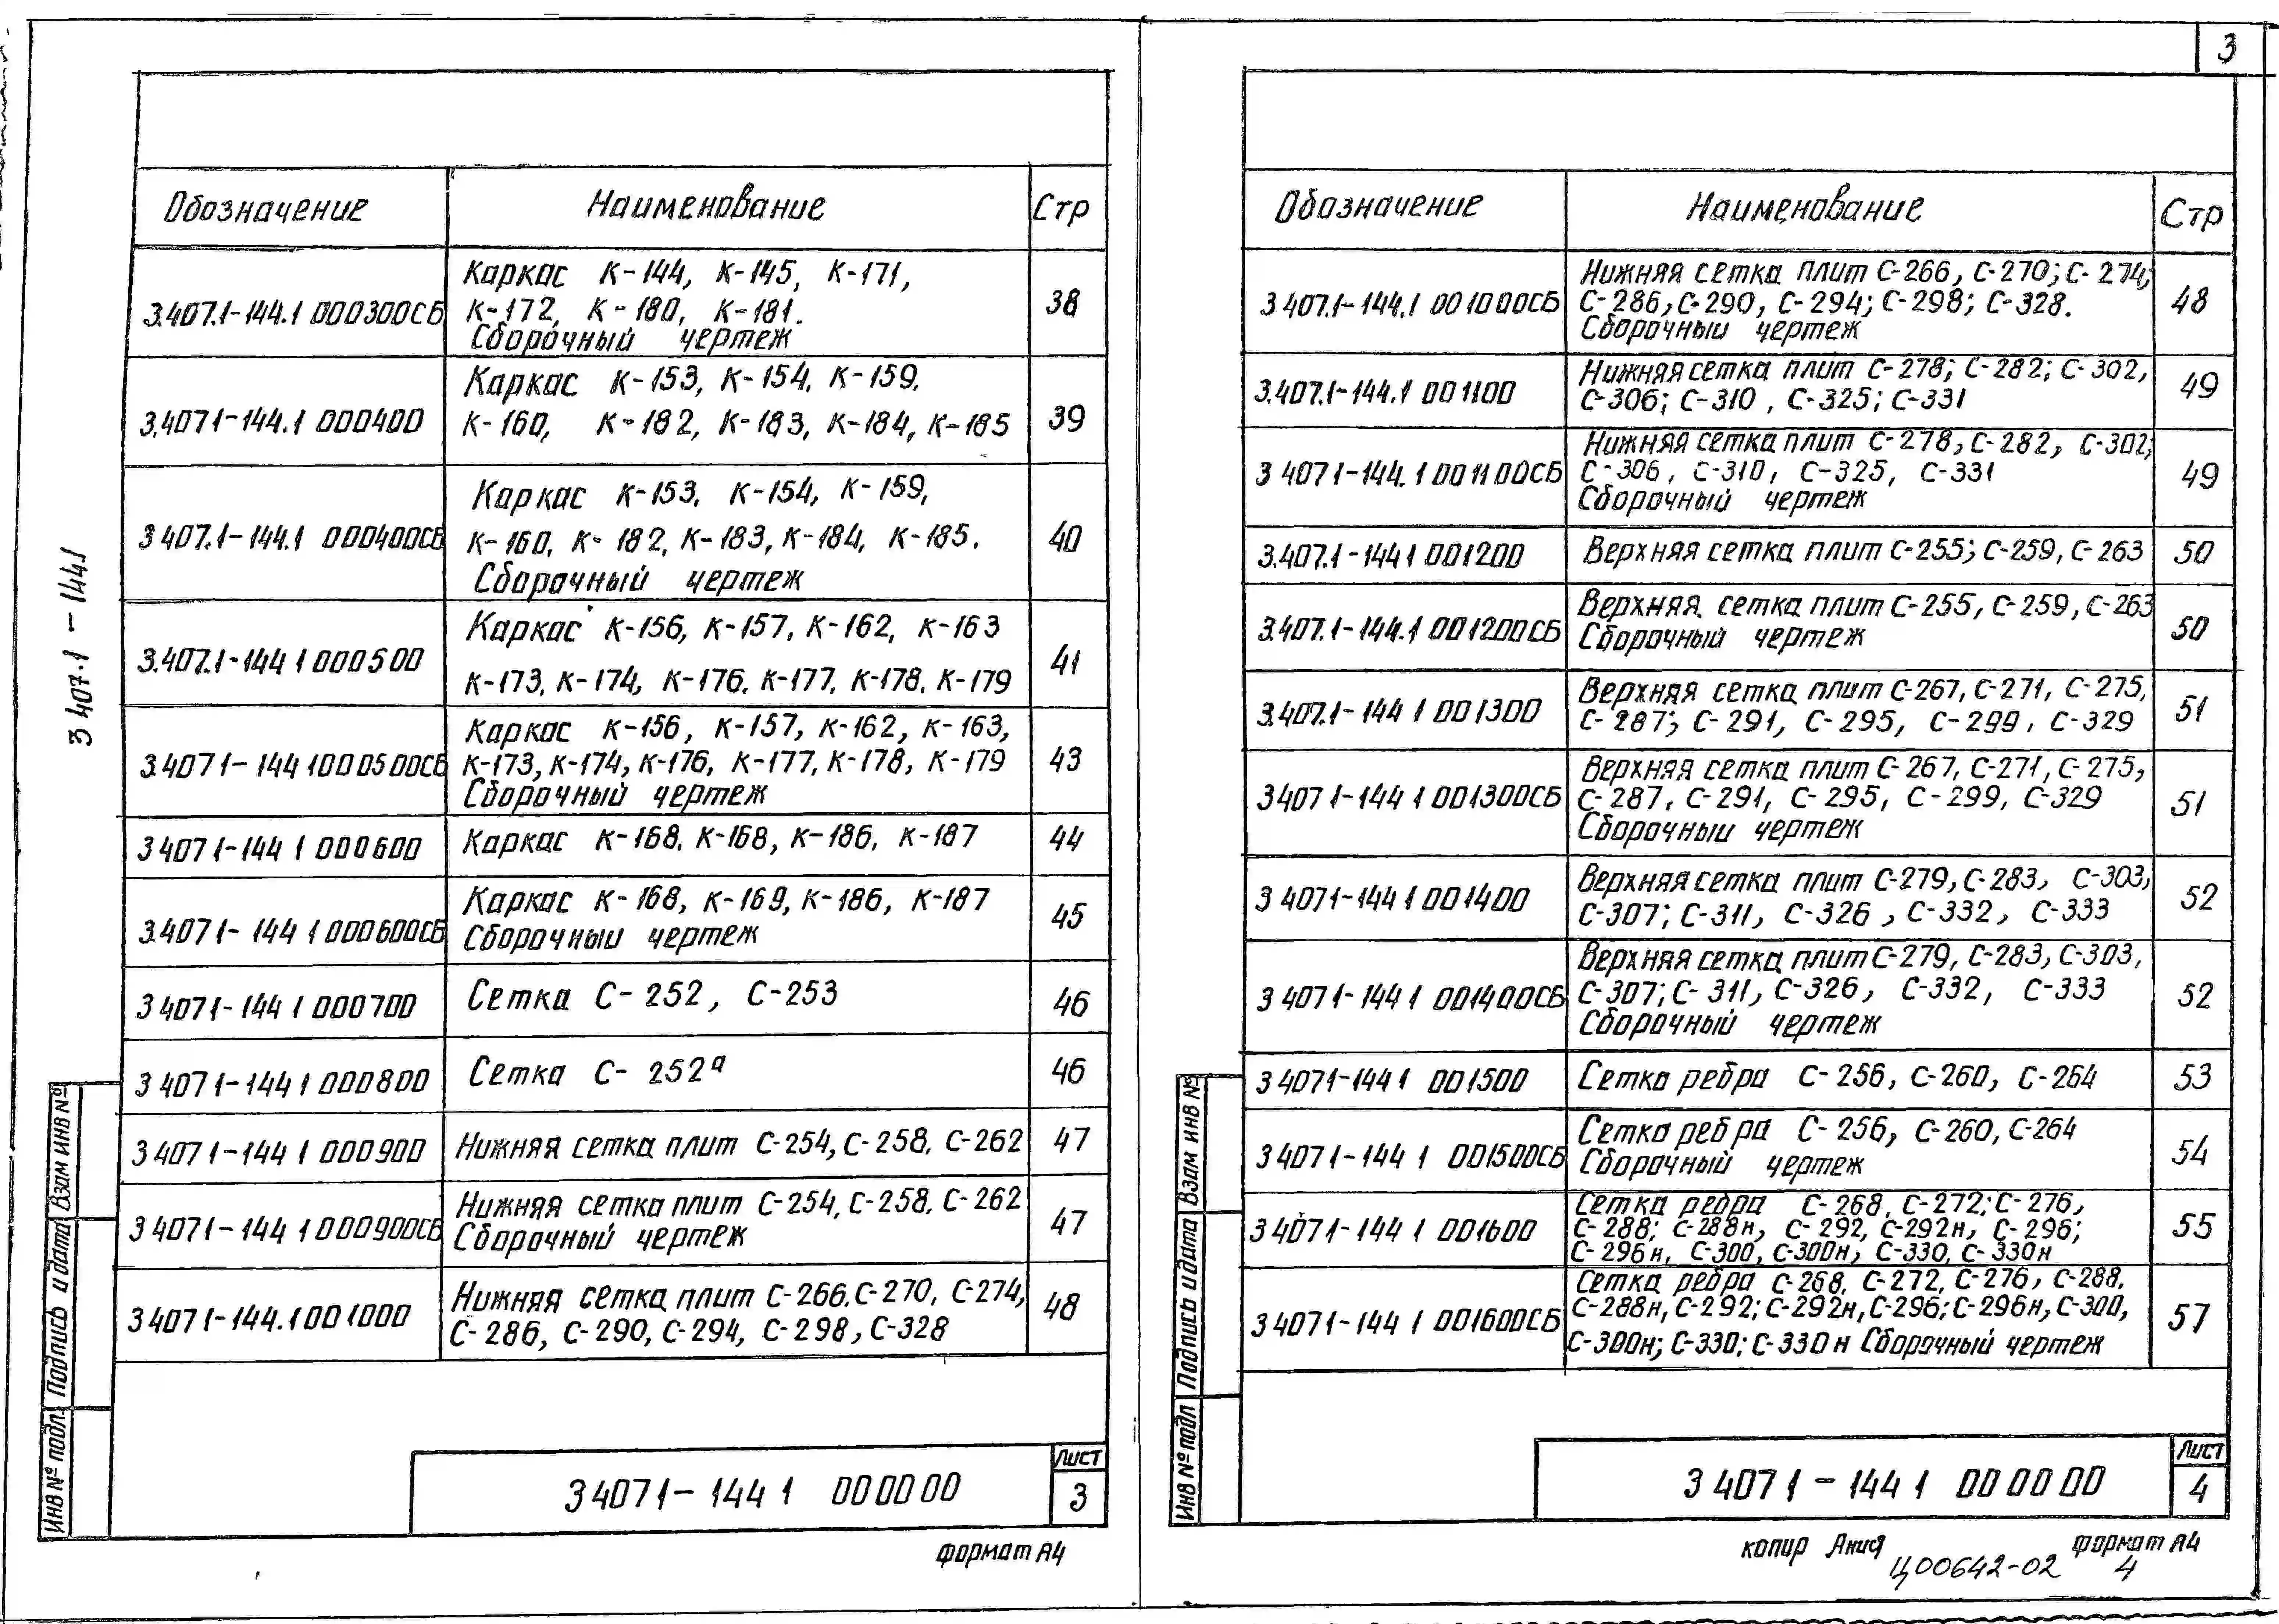 3
3 407.1 - 144.1
Обозначение
Наименование
Стр
3.407.1-144.1 000300СБ
Каркас К-144, К-145, К-171,
К-172, К-180, К-181.
Сборочный чертеж
38
3.4071-144.1 000400
Каркас К-153, К-154, К-159,
К-160, К-182, К-183, К-184, К-185
39
3 407.1-144.1 000400СБ
Каркас К-153, К-154, К-159,
К-160, К-182, К-183, К-184, К-185.
Сборочный чертеж
40
3.407.1-144 1 000500
Каркас К-156, К-157, К-162, К-163
К-173, К-174, К-176, К-177, К-178, К-179
41
3.4071-144 1000500СБ
Каркас К-156, К-157, К-162, К-163,
К-173, К-174, К-176, К-177, К-178, К-179
Сборочный чертеж
43
3 4071-144 1 000600
Каркас К-168, К-168, К-186, К-187
44
3.4071-144 1 000600СБ
Каркас К-168, К-169, К-186, К-187
Сборочный чертеж
45
3 4071-144 1 000700
Сетка С-252, С-253
46
3 4071-144 1 000800
Сетка С-252а
46
3 4071-144 1 000900
Нижняя сетка плит С-254, С-258, С-262
47
3 4071-144 1 000900СБ
Нижняя сетка плит С-254, С-258, С-262
Сборочный чертеж
47
3 4071-144.1 001000
Нижняя сетка плит С-266, С-270, С-274,
С-286, С-290, С-294, С-298, С-328
48
Инв № подл. Подпись и дата Взам инв №
3 4071-144 1 000000
Лист
3
формат А4
Обозначение
Наименование
Стр
3 407.1-144.1 001000СБ
Нижняя сетка плит С-266, С-270; С-274;
С-286; С-290, С-294; С-298; С-328.
Сборочный чертеж
48
3.407.1-144.1 001100
Нижняя сетка плит С-278; С-282; С-302,
С-306; С-310, С-325; С-331
49
3 4071-144.1 001100СБ
Нижняя сетка плит С-278, С-282, С-302;
С-306, С-310, С-325, С-331
Сборочный чертеж
49
3.407.1-144 1 001200
Верхняя сетка плит С-255; С-259, С-263
50
3.407.1-144.1 001200СБ
Верхняя сетка плит С-255, С-259, С-263
Сборочный чертеж
50
3.407.1-144 1 001300
Верхняя сетка плит С-267, С-271, С-275,
С-287; С-291, С-295, С-299, С-329
51
3407 1-144 1 001300СБ
Верхняя сетка плит С-267, С-271, С-275,
С-287, С-291, С-295, С-299, С-329
Сборочный чертеж
51
3 4071-144 1 001400
Верхняя сетка плит С-279, С-283, С-303,
С-307; С-311, С-326, С-332, С-333
52
3 4071-144 1 001400СБ
Верхняя сетка плит С-279, С-283, С-303,
С-307; С-311, С-326, С-332, С-333
Сборочный чертеж
52
3 4071-144 1 001500
Сетка ребра С-256, С-260, С-264
53
3 4071-144 1 001500СБ
Сетка ребра С-256, С-260, С-264
Сборочный чертеж
54
3 4071-144 1 001600
Сетка ребра С-268, С-272; С-276,
С-288; С-288н, С-292, С-292н, С-296;
С-296н, С-300, С-300н, С-330, С-330н
55
3 4071-144 1 001600СБ
Сетка ребра С-268, С-272, С-276, С-288,
С-288н, С-292; С-292н, С-296; С-296н, С-300,
С-300н; С-330; С-330н Сборочный чертеж
57
Инв № подл Подпись и дата Взам инв №
3 4071-144 1 000000
Лист
4
копир
формат А4
Ц00642-02 4